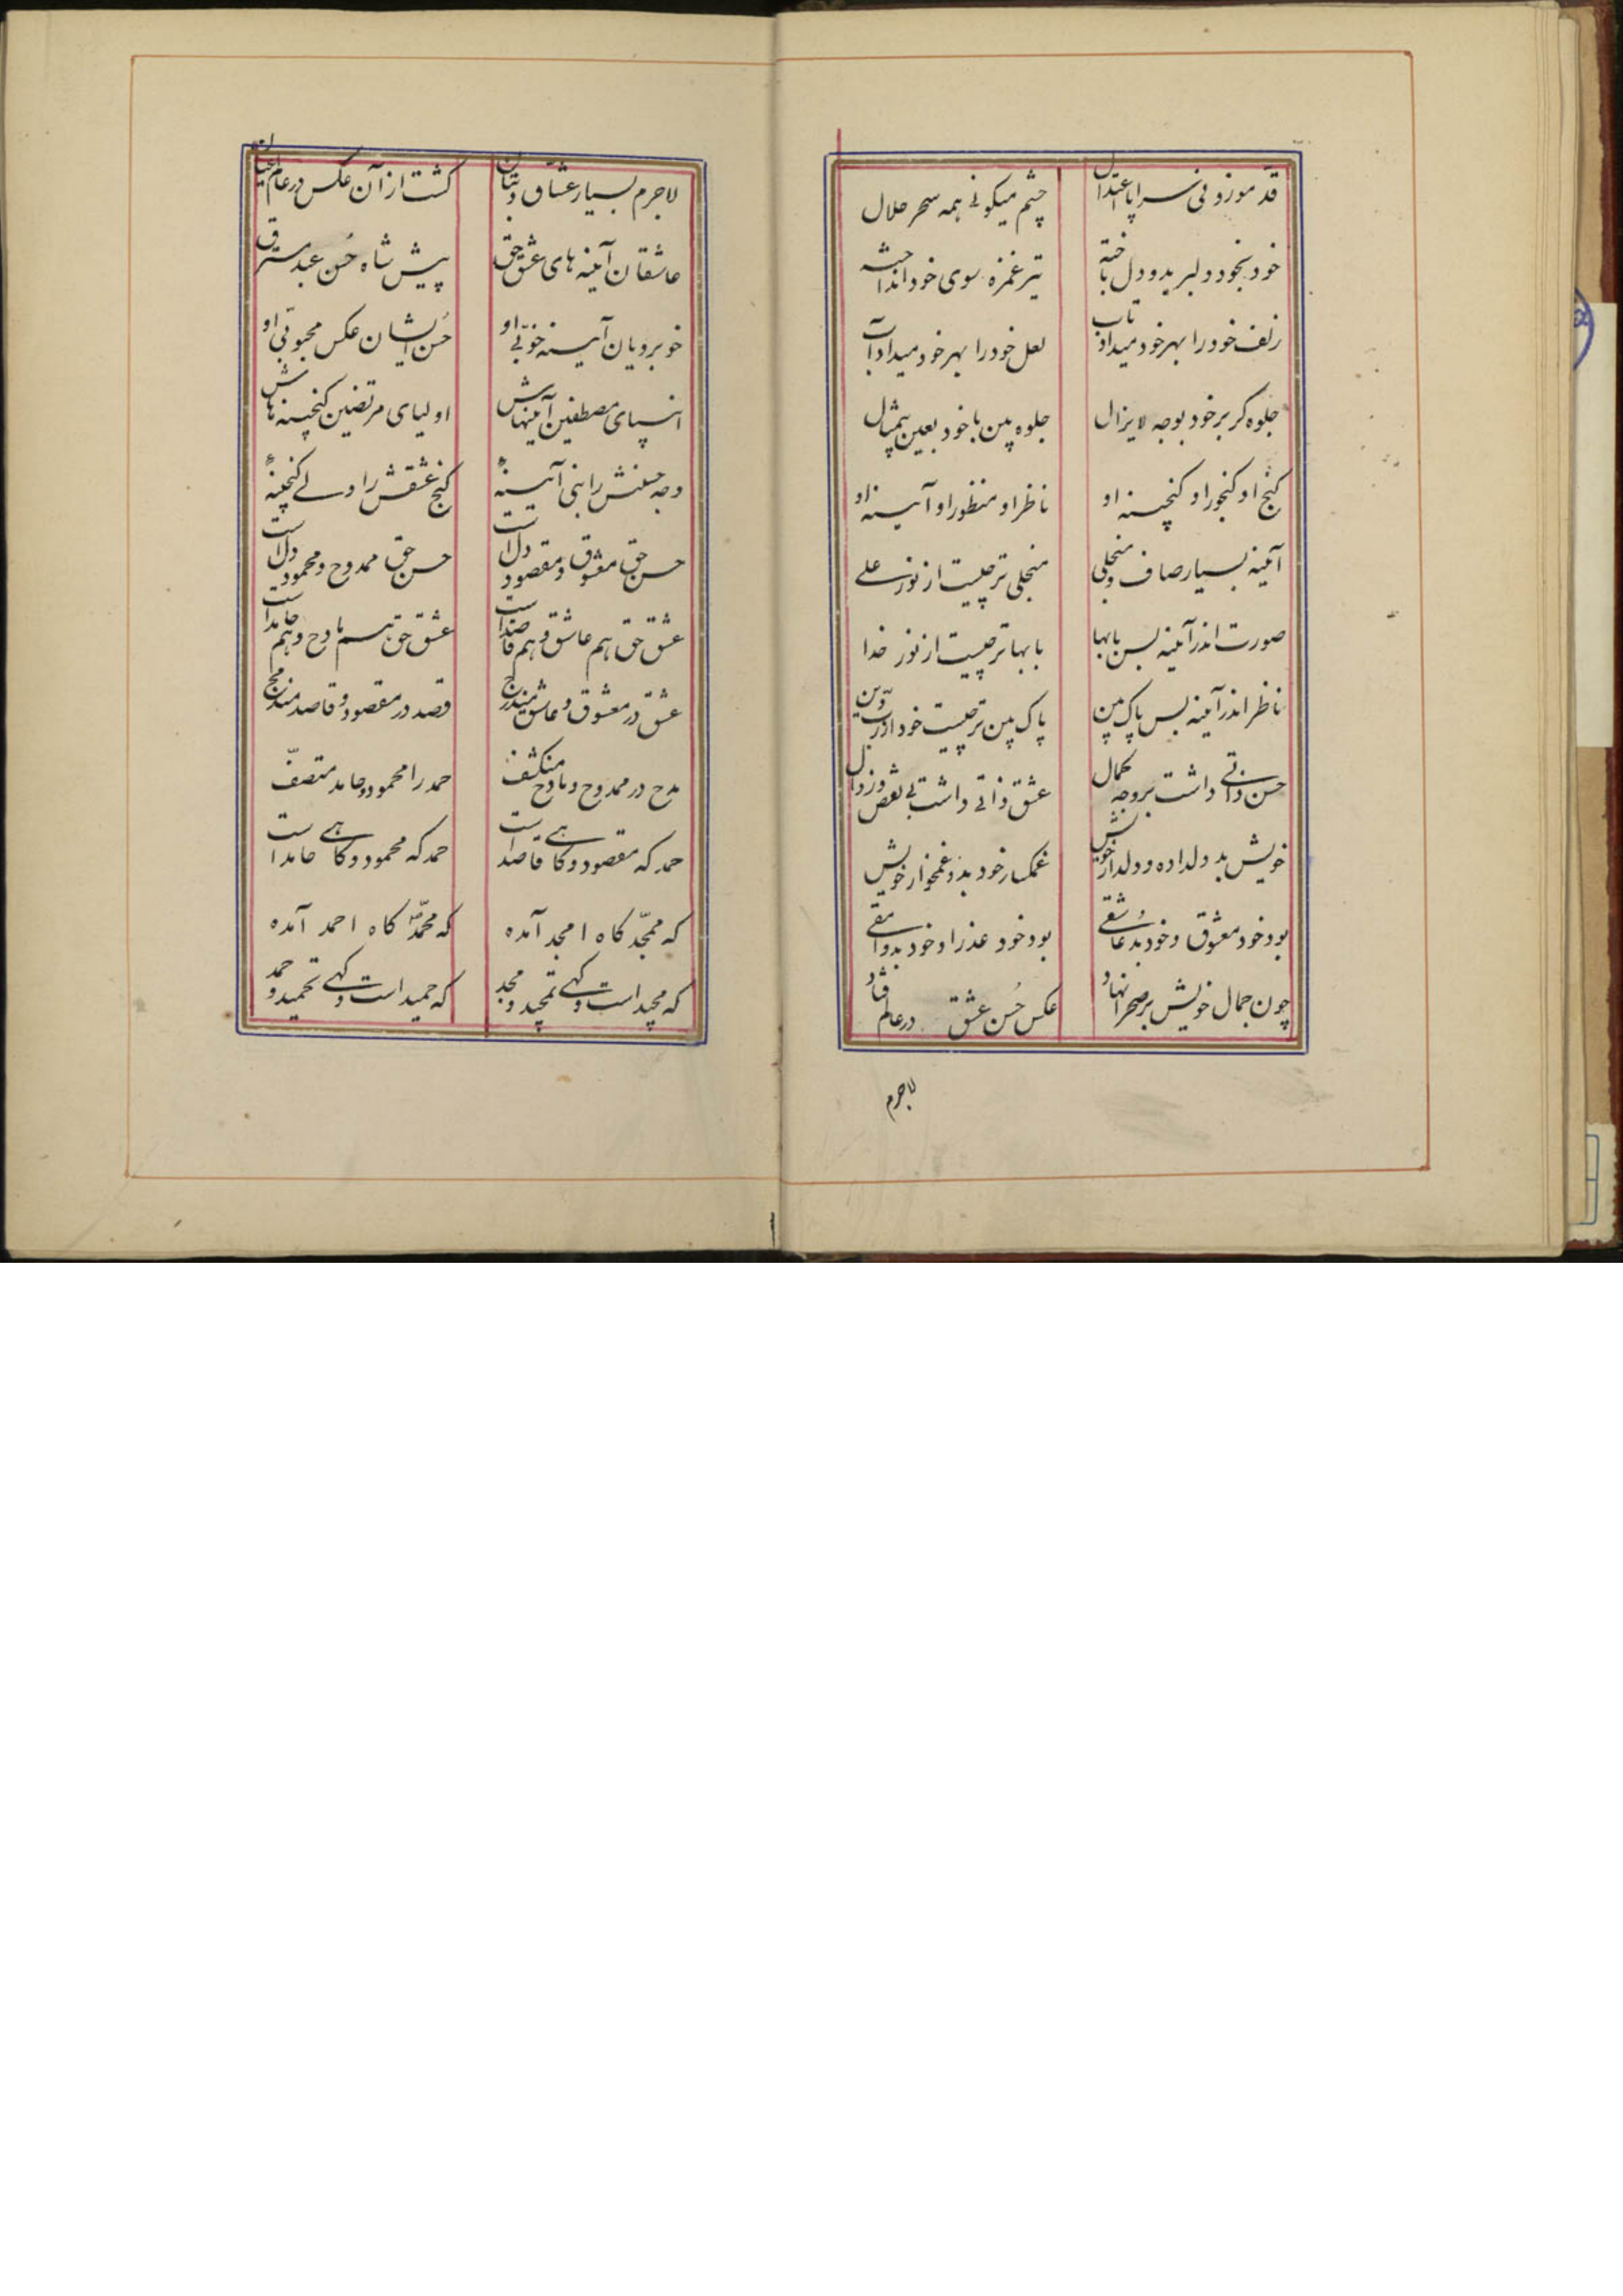 قد موزونی سراپا اعتدال چشم میکونی همه سحر حلال
خود بخود دلبر بد و دل باخته تیر غمزه سوی خود انداخته
زلف خود را بهر خود میداد تاب لعل خود را بهر خود میداد آب
جلوه کر بر خود بوجه لایزال جلوه بین با خود بعین بیمثال
کنج او کنجور او کنجینه او ناظر او منظور او آیینه او
آئینه بسیار صاف و منجلی منجلی تر چیست از نور علی
صورت اندر آئینه بس با بها با بهاتر چیست از نور خدا
ناظر اندر آینه بس پاک بین پاک بین تر چیست خود از رب دین
حسن ذاتی داشت بر وجه کمال عشق ذاتی داشت بی نقص و زوال
خویش بد ولداده و دلدار خویش غمکسار خود بد و غمخوار خویش
بود خود معشوق و خود بد عاشقی بود خود عذرا و خود بد وامقی
چون جمال خویش بر صحرا نهاد عکس حُسن عشق در عالم فتاد
لاجرم
لاجرم بسیار عشاق و بتان کشت از آن عکس در عالم عیان
عاشقان آئینه های عشق حق پیش شاه حُسن عبد مسترق
خوبرویان آیینه خوبّی او حُسن ایشان عکس محبوبّی او
انبیای مصطفین آئینهاش اولیای مرتضین کنجینه هاش
وجه حسنش را نبی آیینهٔ کنج عشقش را ولی کنجینهٔ
حسن حق معشوق و مقصود دل است حسن حق ممدوح و محمود دل است
عشق حق هم عاشق و هم قاصد است عشق حق هم مادح و هم حامد است
عشق در معشوق و عاشق مندرج قصد در مقصود و قاصد مندمج
مدح در ممدوح و مادح منکشف حمد را محمود و حامد متصفّ
حمد که مقصود و کاهی قاصد است حمد که محمود و کاهی حامد است
که ممجّد کاه امجد آمده که محمّد کاه احمد آمده
که مجید است و کهی تمجید و مجد که حمید است و کهی تحمید و حمد